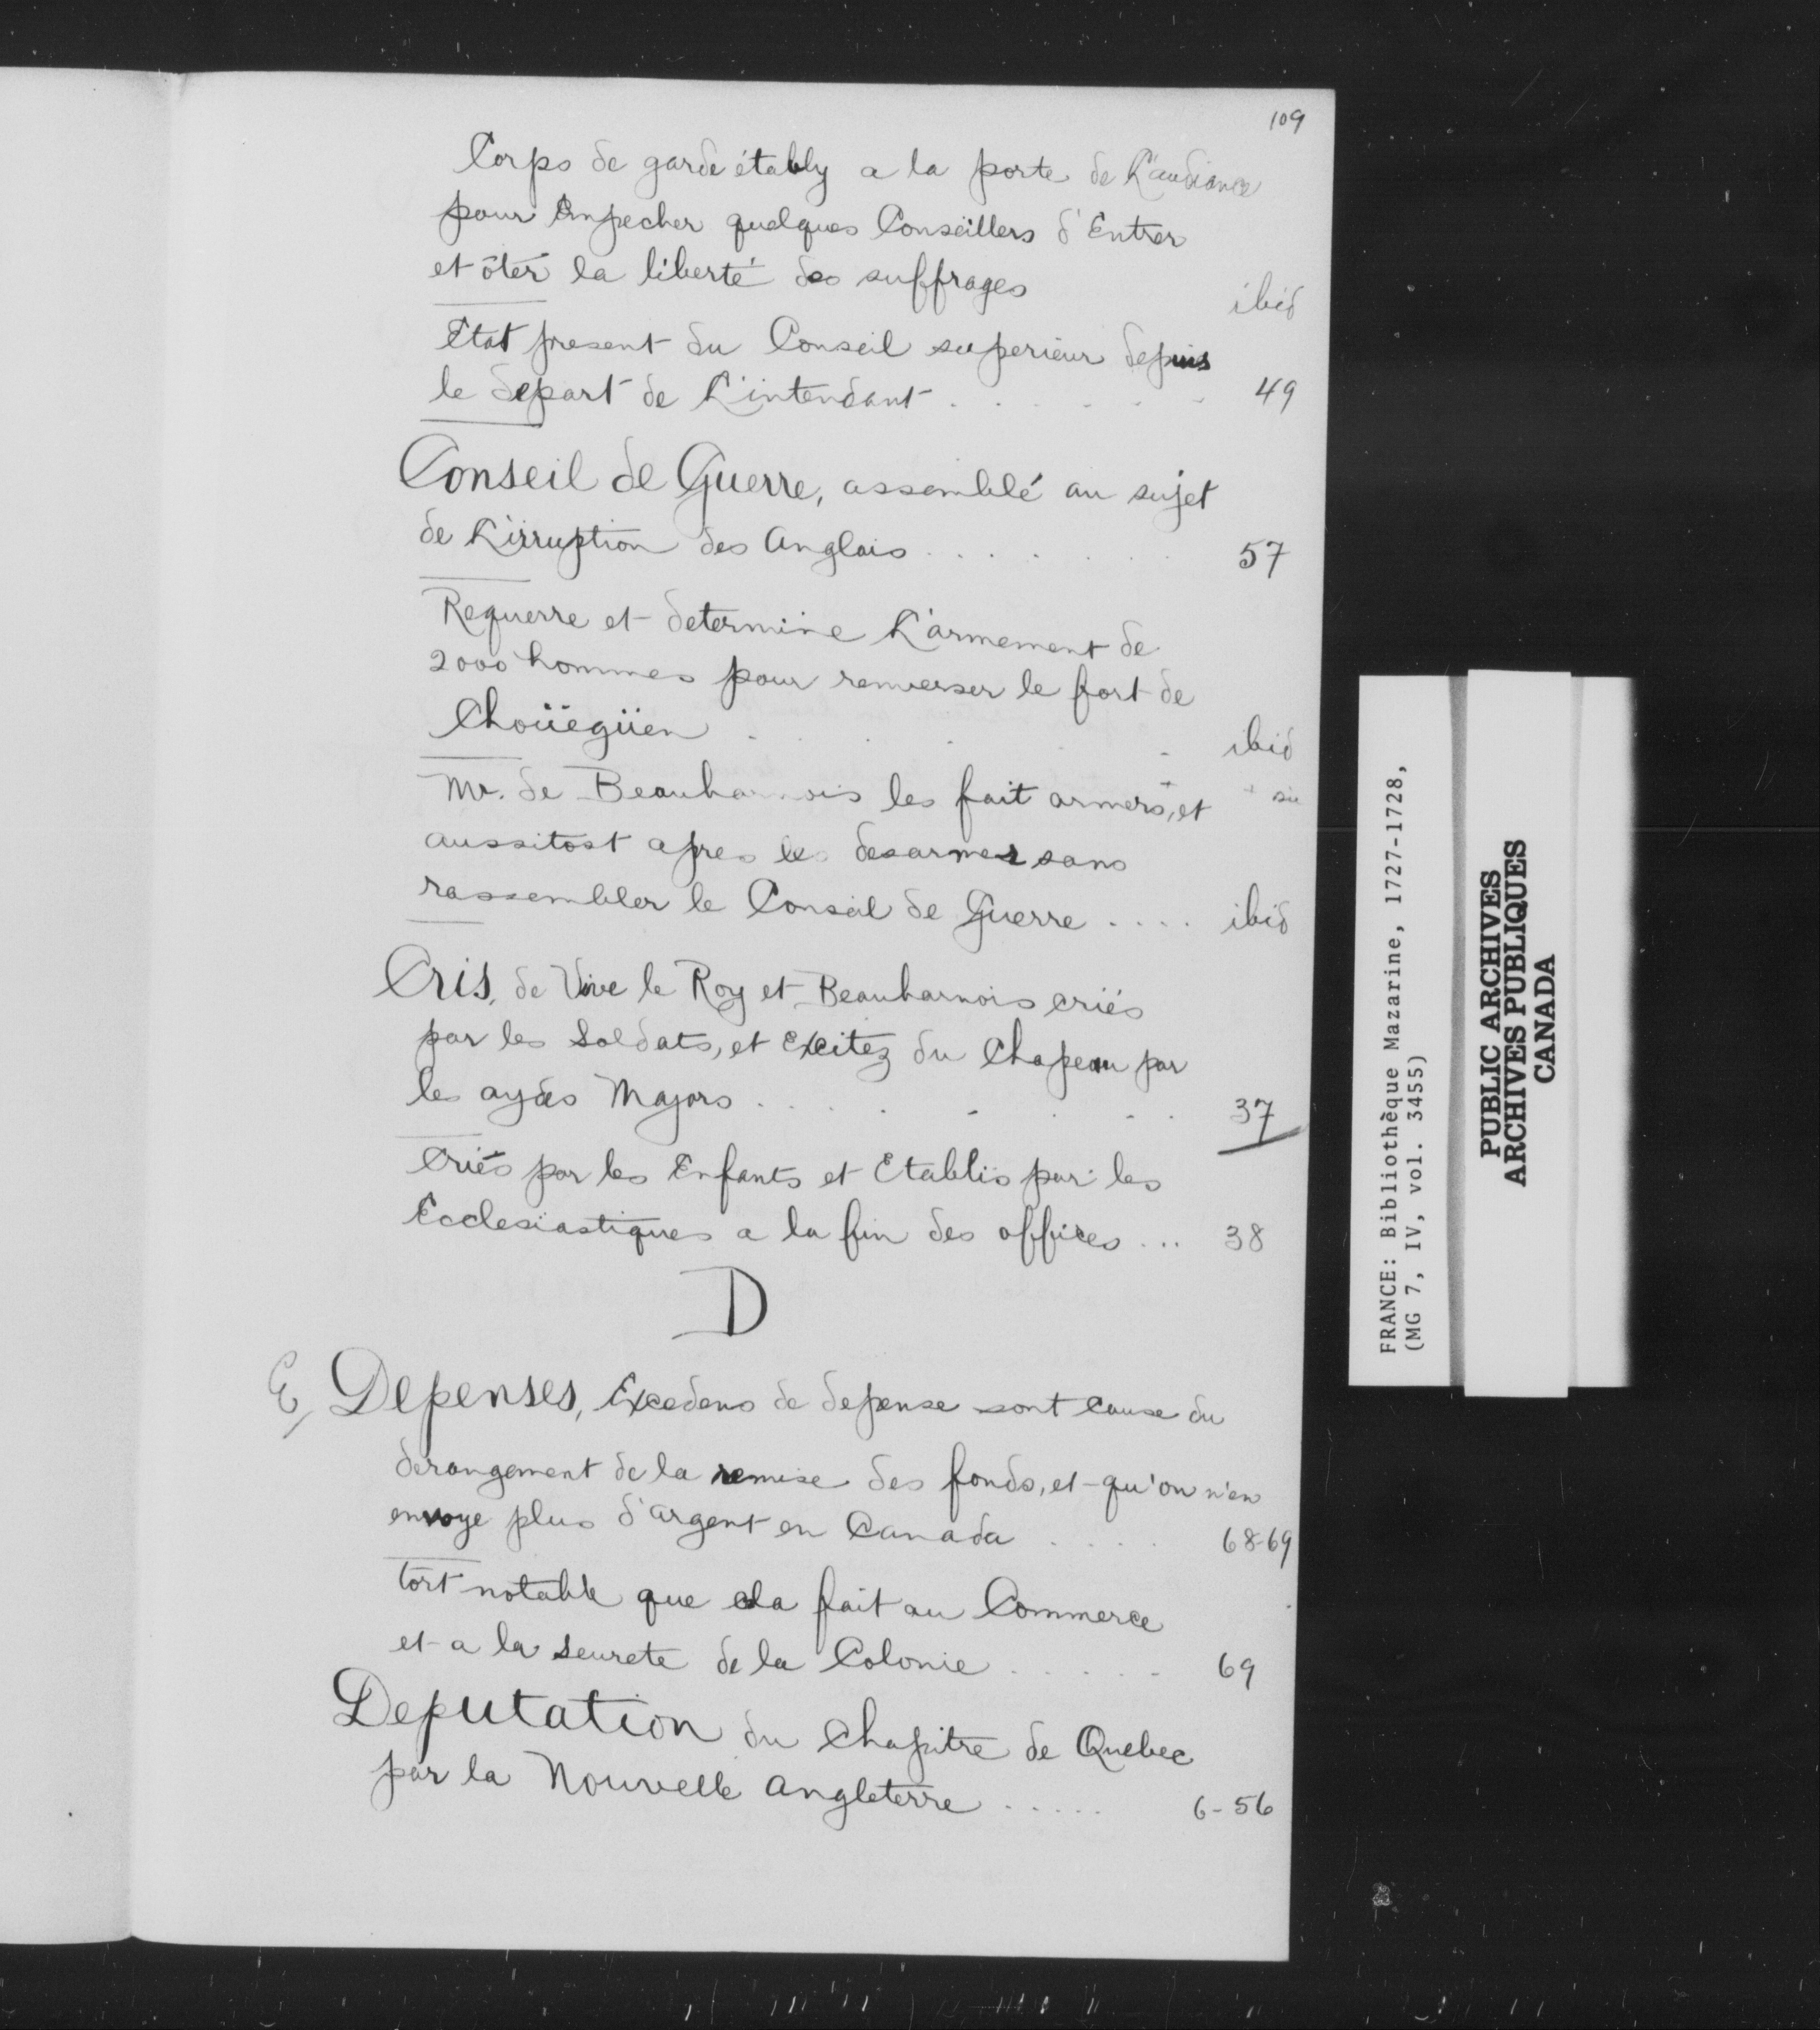 109
Corps de garde étably a la porte de L'audiance
pour Empecher quelques Conseillers d'Entrer
et ôter la liberté des suffrages ibid
Etat present du Conseil superieur depuis
le depart de L'intendant . . . . . . 49
Conseil de Guerre, assemblé au sujet
de L'irruption des Anglais . . . . . . 57
Requerre et determine L'armement de
2000 hommes pour renverser le fort de
Choüegüen . . . . . ibid
Mr. de Beauharnois les fait armers, et + sic
aussitost apres les desarmer sans
rassembler le Conseil de Guerre .... ibid
Cris, de Vive le Roy et Beauharnois criés
par les Soldats, et Excitez du Chapeau par
les aydes Majors . . . . . . 37
Criés par les Enfants et Etablis par les
Ecclesiastiques a la fin des offices ... 38
D
E Depenses, Excedens de depense sont cause du
derangement de la remise des fonds, et qu'on n'en
envoye plus d'argent en Canada . . . . 68-69
tort notable que cela fait au Commerce
et a la seurete de la Colonie . . . . . 69
Deputation du Chapitre de Quebec
par la Nouvelle Angleterre ..... 6-56
FRANCE: Bibliothèque Mazarine, 1727-1728,
(MG 7, IV, vol. 3455)
PUBLIC ARCHIVES
ARCHIVES PUBLIQUES
CANADA